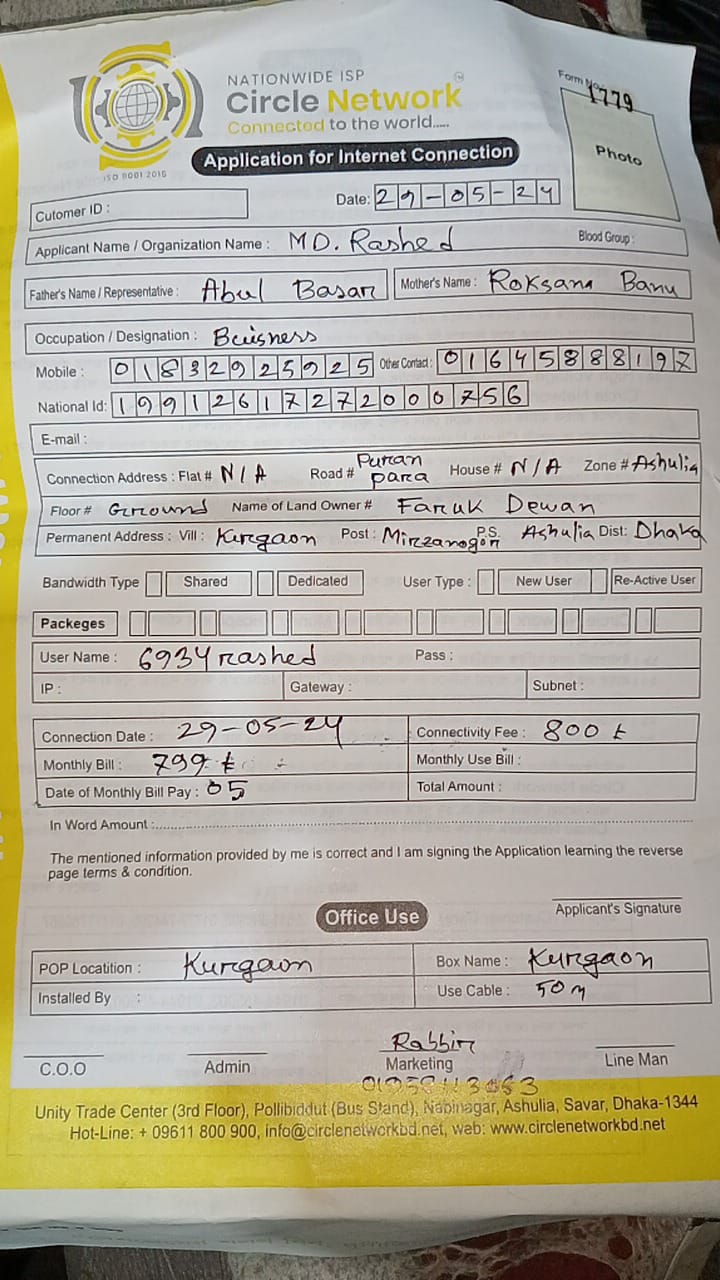 NATIONWIDE ISP
Circle Network
Connected to the world.....
ISO 9001 2015
Form No. 1779
Photo
Application for Internet Connection
Cutomer ID :
Date: 29-05-24
Applicant Name / Organization Name : MD. Rashed Blood Group:
Father's Name / Representative : Abul Basar Mother's Name : Roksana Banu
Occupation / Designation : Beisness
Mobile : 01832925925 Other Contact : 01645888197
National Id: 19912617272000756
E-mail :
Connection Address : Flat # N/A Road # Puran para House # N/A Zone # Ashulia
Floor # Ground Name of Land Owner # Faruk Dewan
Permanent Address : Vill : Kurgaon Post : Mirzanogor P.S. Ashulia Dist: Dhaka
Bandwidth Type Shared Dedicated User Type : New User Re-Active User
Packeges
User Name : 6934rashed Pass :
IP : Gateway : Subnet :
Connection Date : 29-05-24 Connectivity Fee : 800 t
Monthly Bill : 799 t Monthly Use Bill :
Date of Monthly Bill Pay : 05 Total Amount :
In Word Amount :
The mentioned information provided by me is correct and I am signing the Application learning the reverse
page terms & condition.
Applicant's Signature
Office Use
POP Locatition : Kurgaon Box Name : Kurgaon
Installed By : Use Cable : 50 m
Rabbir
C.O.O Admin Marketing Line Man
Unity Trade Center (3rd Floor), Pollibiddut (Bus Stand), Nabinagar, Ashulia, Savar, Dhaka-1344
Hot-Line: + 09611 800 900, info@circlenetworkbd.net, web: www.circlenetworkbd.net